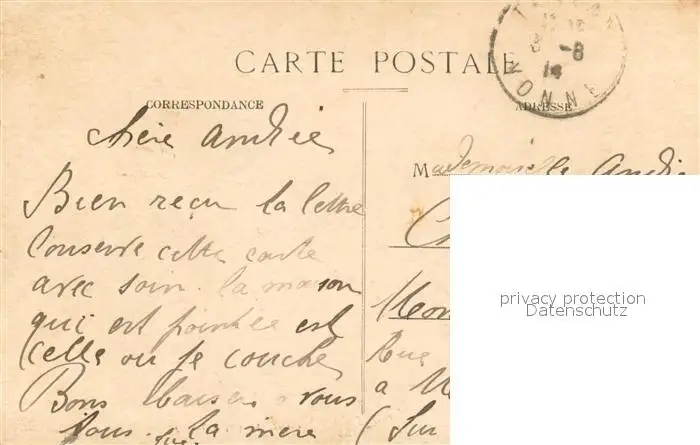 CARTE POSTALE
CORRESPONDANCE
ADRESSE
8 -8
14
YONNE
chère Andrée
Bien reçu la lettre
Conserve cette carte
avec soin. la maison
qui est pointée est
celle ou je couche
Bons baisers a vous
tous. la mère
Mademoiselle Andrée
Rue
a
(Sur
privacy protection
Datenschutz